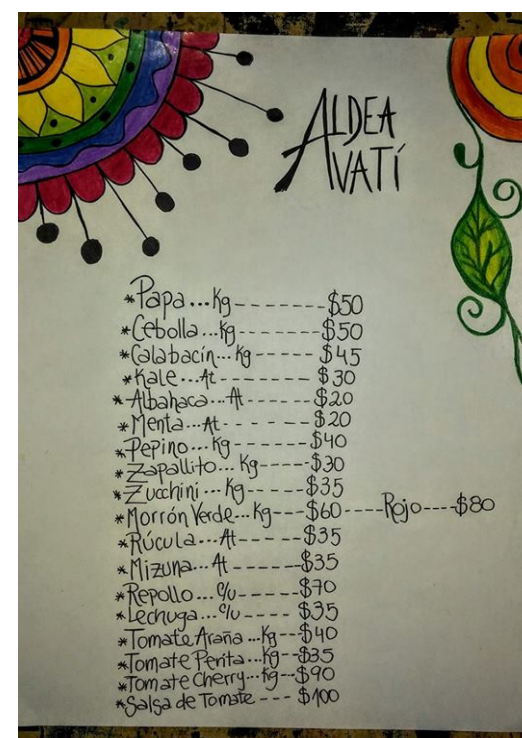 ALDEA
AVATÍ
*Papa...Kg--------$50
*Cebolla...Kg--------$50
*Calabacín...Kg-----$45
*Kale...At-------$30
*Albahaca...At-----$20
*Menta...At-- - ----$20
*Pepino...Kg-----$40
*Zapallito...Kg----$30
*Zucchini...Kg-----$35
*Morrón Verde...Kg---$60----Rojo----$80
*Rúcula...At------$35
*Mizuna...At -----$35
*Repollo...c/u----- $70
*Lechuga...c/u----- $35
*Tomate Araña...Kg--$40
*Tomate Perita...Kg--$35
*Tomate Cherry...Kg--$90
*Salsa de Tomate --- $100